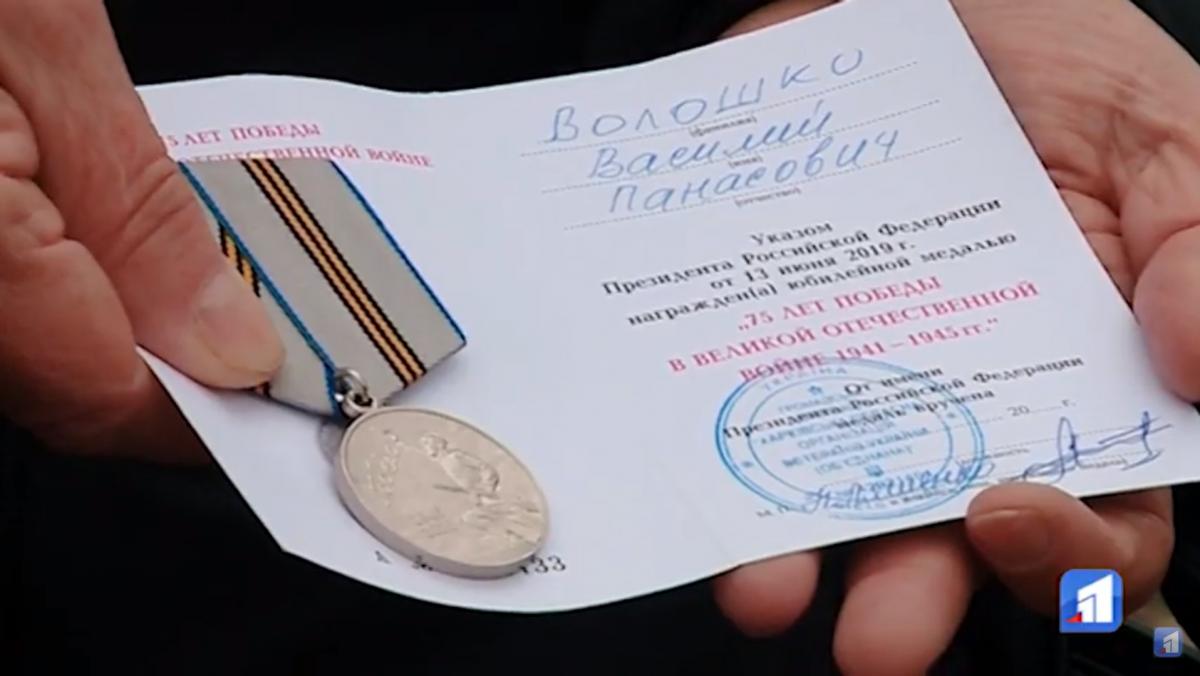 75 ЛЕТ ПОБЕДЫ
ОТЕЧЕСТВЕННОЙ ВОЙНЕ
33
Волошко
(фамилия)
Василий
(имя)
Панасович
(отчество)
Указом
Президента Российской Федерации
от 13 июня 2019 г.
награжден(а) юбилейной медалью
„75 ЛЕТ ПОБЕДЫ
В ВЕЛИКОЙ ОТЕЧЕСТВЕННОЙ
ВОЙНЕ 1941 – 1945 гг.“
От имени
Президента Российской Федерации
медаль вручена
20 г.
УКРАЇНА
ОРГАНІЗАЦІЯ
ВЕТЕРАНІВ УКРАЇНИ
1
1